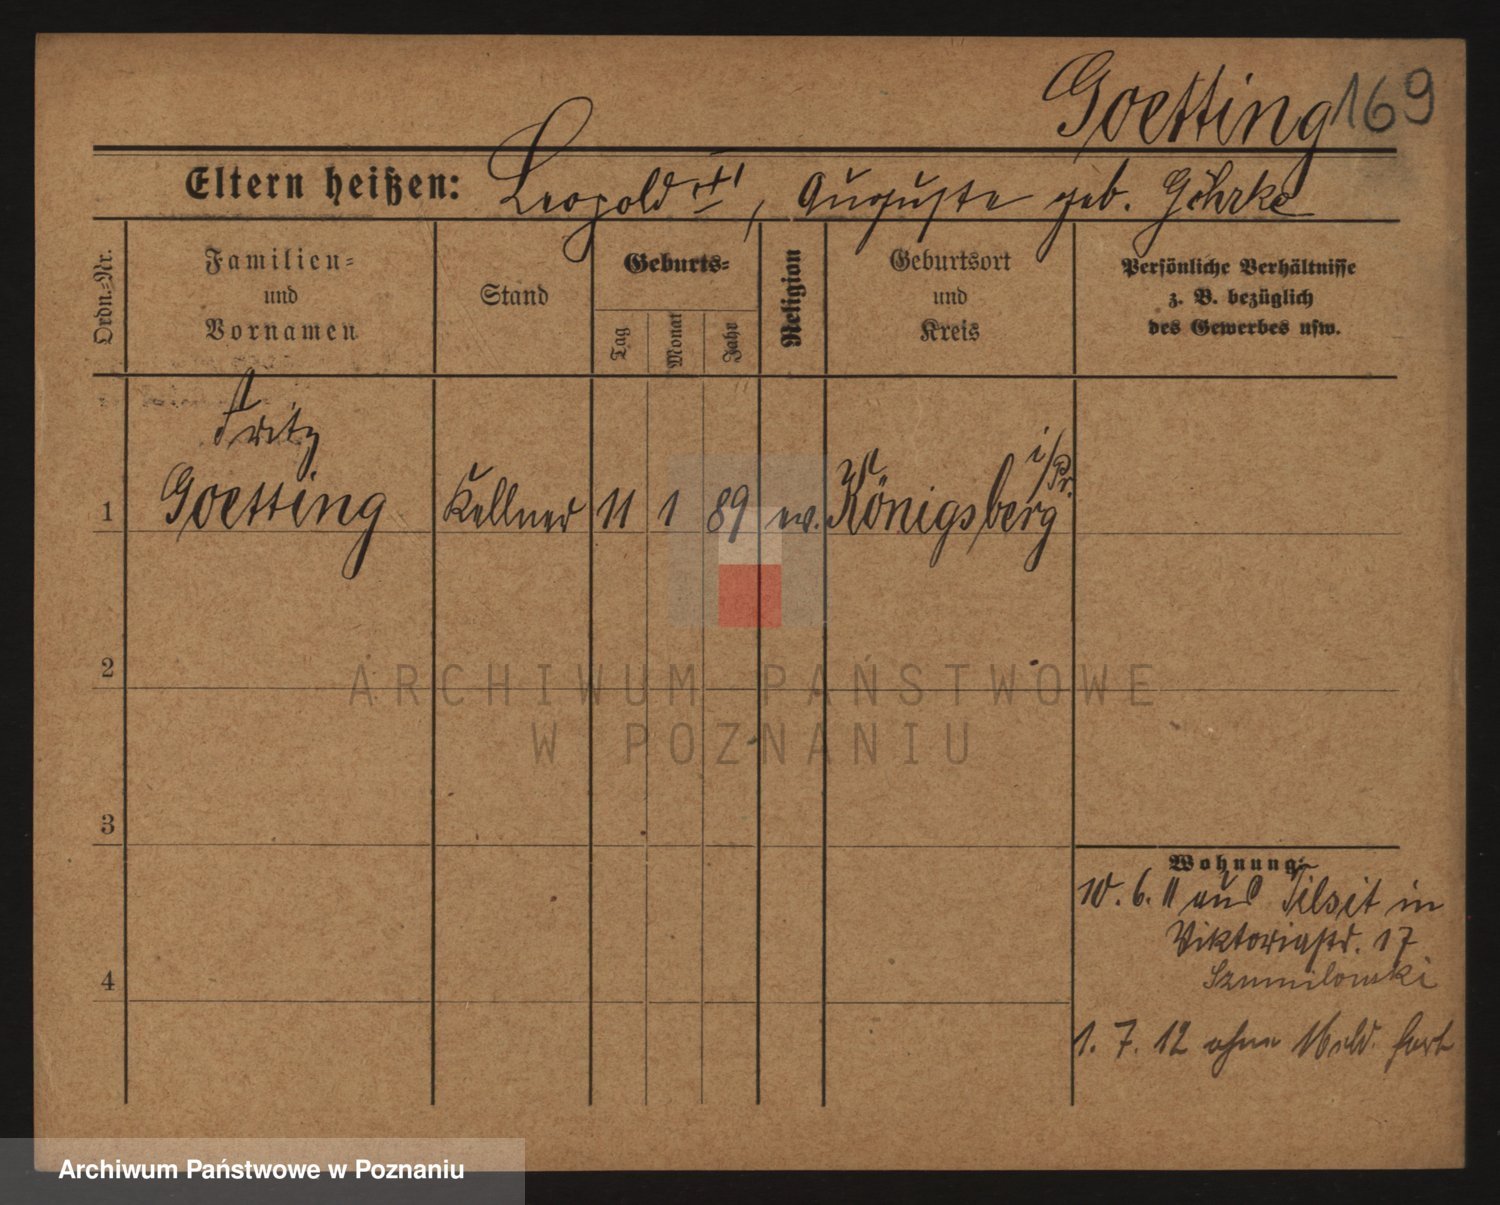 Goetting 169
Eltern heißen: Leopold †, Auguste geb. Göhrke
Ordn.-Nr.
Familien-
und
Vornamen
Stand
Geburts-
Tag
Monat
Jahr
Religion
Geburtsort
und
Kreis
Persönliche Verhältnisse
z. B. bezüglich
des Gewerbes usw.
Fritz
1 Goetting Kellner 11 1 89 ev. Königsberg i/Pr.
2
3
4
Wohnung:
10. 6. 11 aus Tilsit in
Viktoriastr. 17
1. 7. 12 ohne Meld. fort
ARCHIWUM PAŃSTWOWE
W POZNANIU
Archiwum Państwowe w Poznaniu